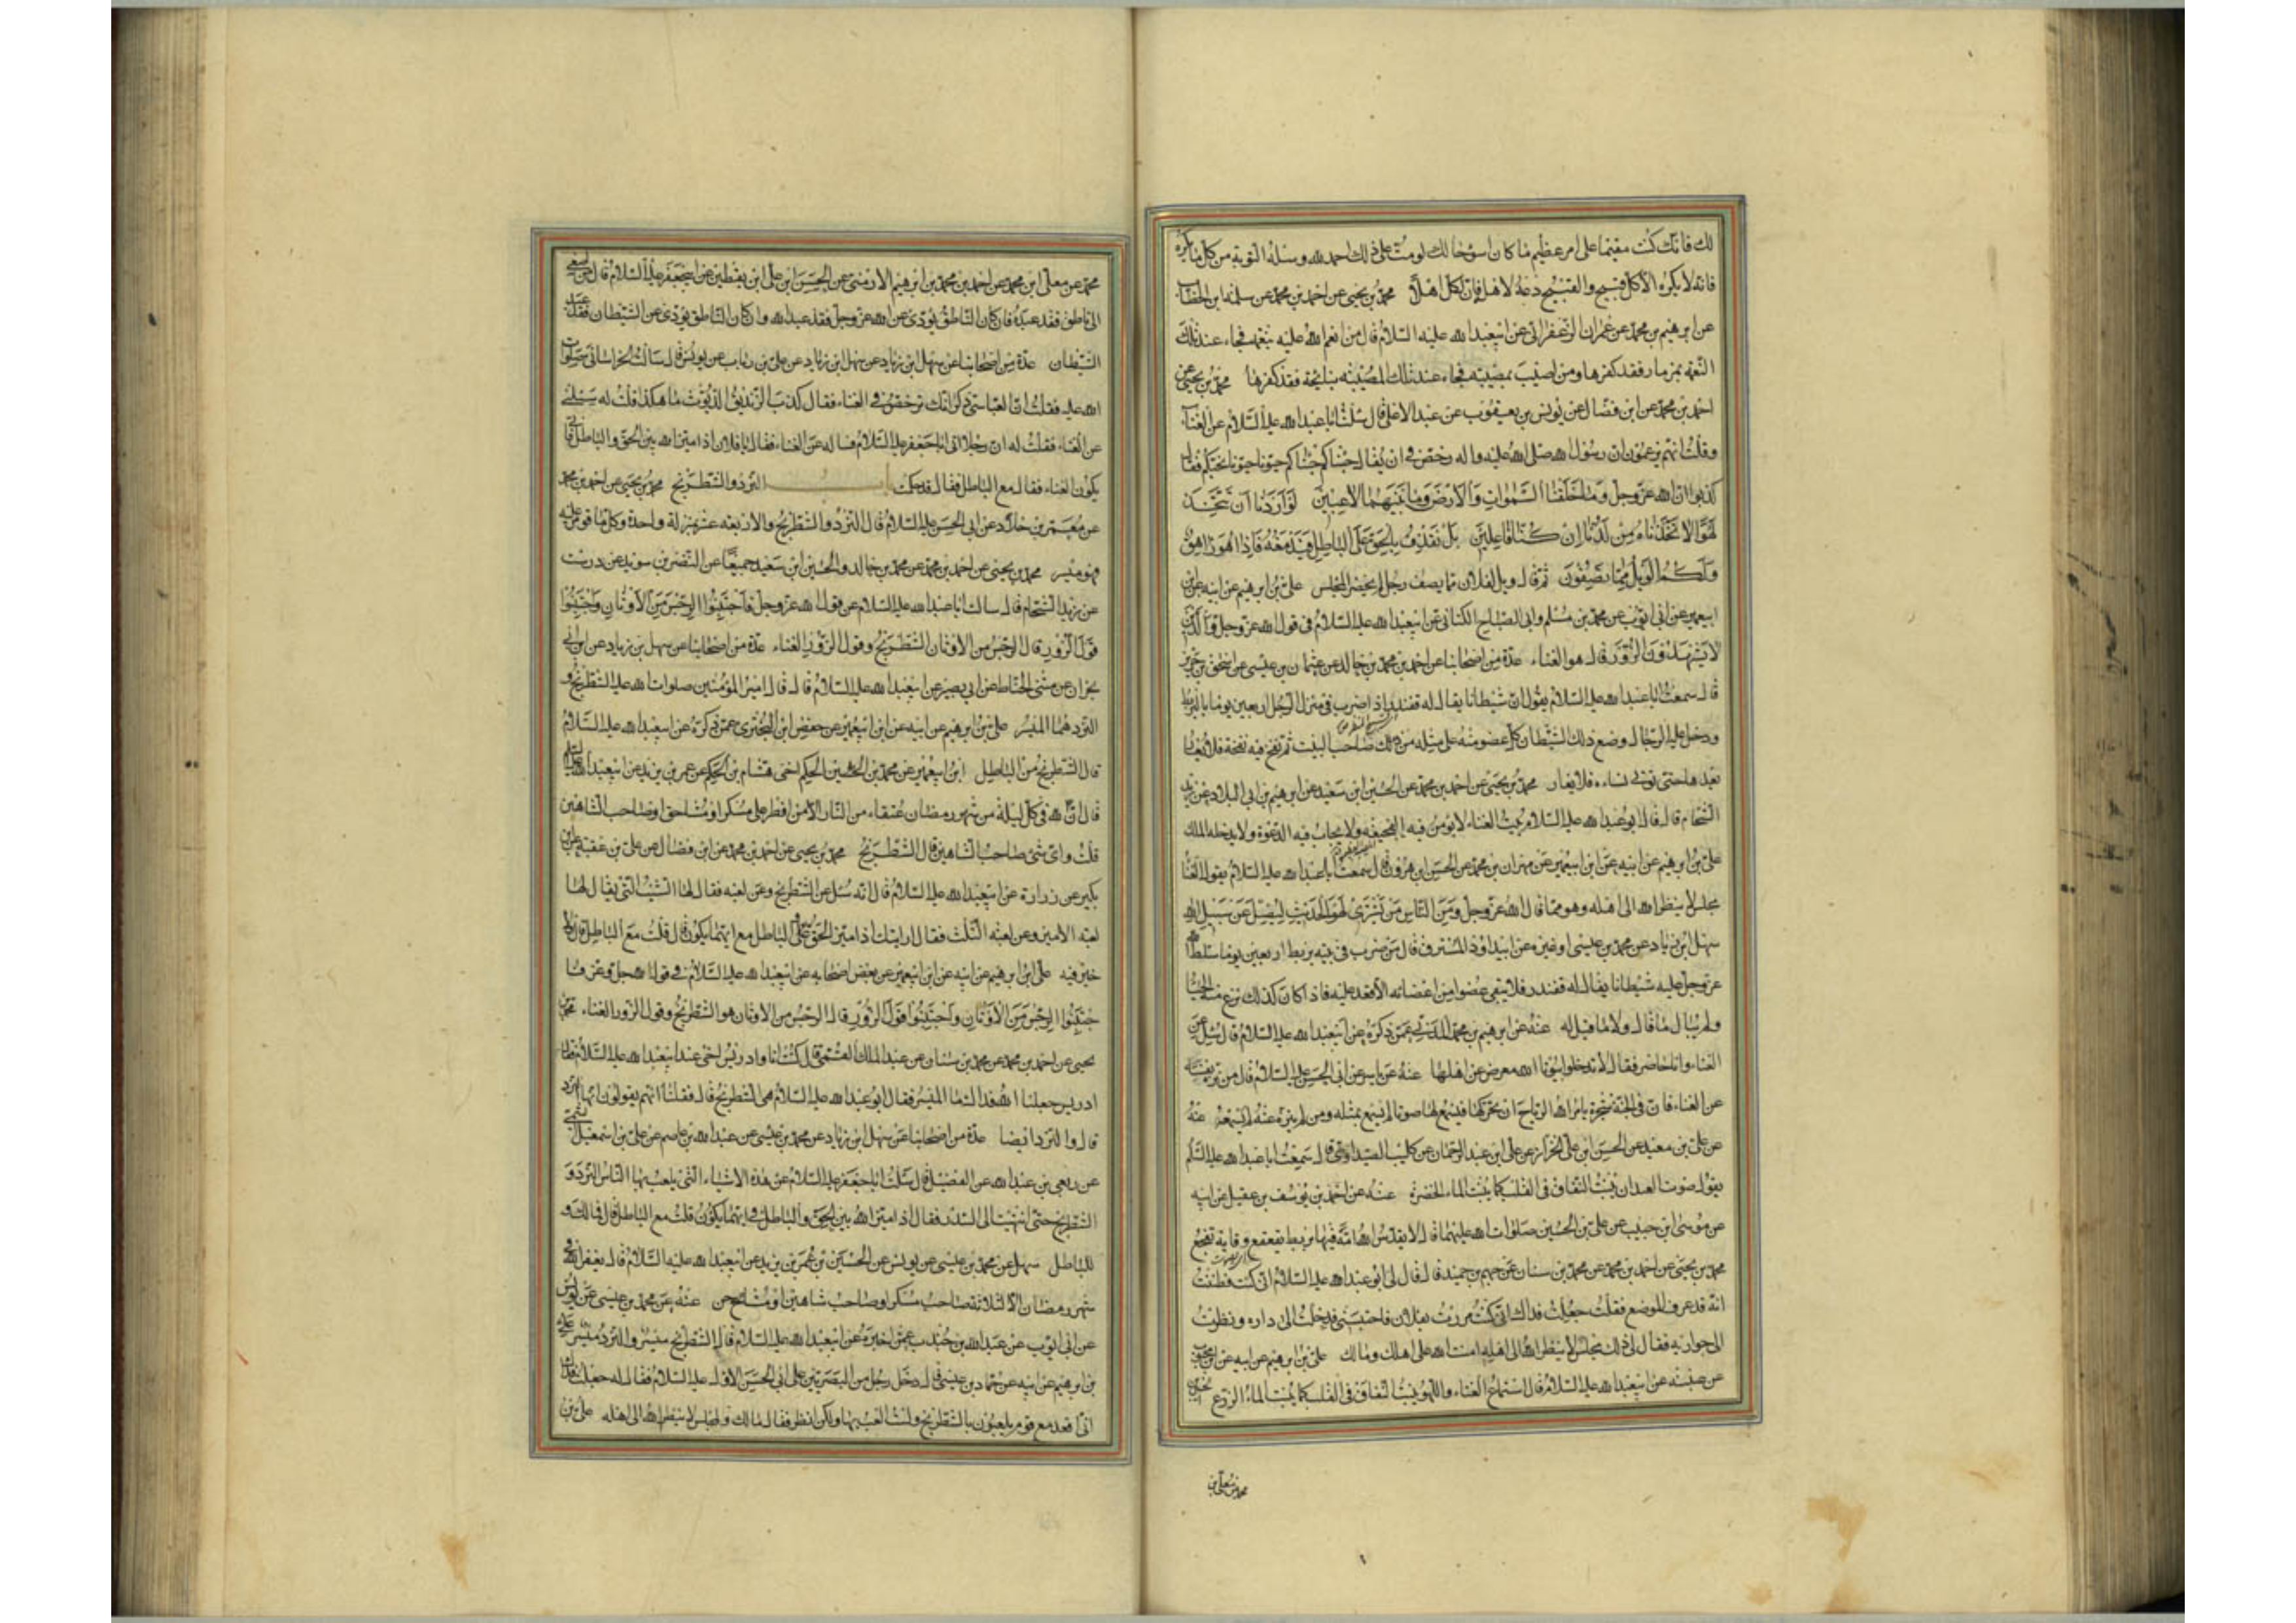 لك فانك كنت مقيما على امر عظيم ما كان اسوء حالك لو مت على ذلك احمد الله وسله التوبة من كل ما يكره
فانه لا يكره الا كل قبيح والقبيح دعه لاهله فان لكل اهلا محمد بن يحيى عن احمد بن محمد عن سلمة ابن الخطاب
عن ابرهيم بن محمد عن عمران الزعفراني عن ابيعبد الله عليه السلام قال من انعم الله عليه بنعمة فجاء عند تلك
النعمة بمزمار فقد كفرها ومن اصيب بمصيبة فجاء عند تلك المصيبة بنايحة فقد كفرها محمد بن يحيى عن
احمد بن محمد عن ابن فضال عن يونس بن يعقوب عن عبد الاعلى قال سئلت ابا عبد الله عليه السلام عن الغناء
وقلت انهم يزعمون ان رسول الله صلى الله عليه واله رخص في ان يقال جئناكم جئناكم حيونا حيونا نحيكم فقال
كذبوا ان الله عز وجل وما خلقنا السموات والارض وما بينهما لاعبين لو اردنا ان نتخذ
لهوا لاتخذناه من لدنا ان كنا فاعلين بل نقذف بالحق على الباطل فيدمغه فاذا هو زاهق
ولكم الويل مما تصفون ثم قال ويل لفلان مما يصف رجل لم يحضر المجلس على بن ابرهيم عن ابيه عن ابن
ابيعمير عن ابي ايوب عن محمد بن مسلم وابي الصباح الكناني عن ابيعبد الله عليه السلام في قول الله عز وجل والذين
لا يشهدون الزور قال هو الغناء عدة من اصحابنا عن احمد بن محمد بن خالد عن عثمان بن عيسى عن اسحق بن جرير
قال سمعت ابا عبد الله عليه السلام يقول ان شيطانا يقال له قفندر اذا ضرب في منزل الرجل اربعين يوما بالبربط
ودخل عليه الرجال وضع ذلك الشيطان كل عضو منه على مثله من صاحب البيت ثم نفخ فيه نفخة فلا يغار
بعدها حتى تؤتى نساءه فلا يغار محمد بن يحيى عن احمد بن محمد عن الحسين ابن سعيد عن ابرهيم بن ابي البلاد عن زيد
الشحام قال قال ابو عبد الله عليه السلام بيت الغناء لا يؤمن فيه الفجيعة ولا يجاب فيه الدعوة ولا يدخله الملك
على بن ابرهيم عن ابيه عن ابن ابيعمير عن مهران بن محمد عن الحسن ابن هرون قال سمعت ابا عبد الله عليه السلام يقول الغناء
مجلس لا ينظر الله الى اهله وهو مما قال الله عز وجل ومن الناس من يشترى لهو الحديث ليضل عن سبيل الله
سهل ابن زياد عن محمد بن عيسى او غيره عن ابيداود المسترق قال من ضرب في بيته بربط اربعين يوما سلط الله
عز وجل عليه شيطانا يقال له قفندر فلا يبقى عضوا من اعضائه الا قعد عليه فاذا كان كذلك نزع منه الحيا
ولم يبال ما قال ولا ما قيل له عنه عن ابرهيم بن محمد المدني عمن ذكره عن ابيعبد الله عليه السلام قال سئل عن
الغناء وانا حاضر فقال لا تدخلوا بيوتا الله معرض عن اهلها عنه عن ياسر عن ابي الحسن عليه السلام قال من نزه نفسه
عن الغناء فان في الجنة شجرة يامر الله الرياح ان تحركها فيسمع لها صوتا لم يسمع بمثله ومن لم يتنزه عنه لم يسمعه عنه
عن على بن معبد عن الحسن ابن على الخزاز عن على ابن عبد الرحمان عن كليب الصيداوي قال سمعت ابا عبد الله عليه السلم
يقول صوت العيدان ينبت النفاق في القلب كما ينبت الماء الخضرة عنه عن احمد بن يوسف بن عقيل عن ابيه
عن موسى ابن حبيب عن على بن الحسين صلوات الله عليهما قال لا يقدس الله امة فيها بربط يقعقع وناية تفجع
محمد بن يحيى عن احمد بن محمد عن محمد بن سنان عن جهم بن حميد قال قال لى ابو عبد الله عليه السلام انى كنت فظننت
انه قد عرف الموضع فقلت جعلت فداك انى كنت مررت بفلان فاحتبسني فدخلت الى داره ونظرت
الى جواريه فقال لى ذلك مجلس لا ينظر الله الى اهله امنت الله على اهلك ومالك على بن ابرهيم عن ابيه عن
عن عنبسة عن ابيعبد الله عليه السلام قال استماع الغناء واللهو ينبت النفاق في القلب كما ينبت الماء الزرع
محمد عن معلى ابن
محمد عن معلى ابن محمد عن احمد بن محمد بن ابرهيم الارمني عن الحسن ابن على ابن يقطين عن ابيجعفر عليه السلام قال من اصغى
الى ناطق فقد عبده فان كان الناطق يؤدى عن الله عز وجل فقد عبد الله وان كان الناطق يؤدى عن الشيطان فقد عبد
الشيطان عدة من اصحابنا عن سهل ابن زياد عن سهل ابن زياد عن على بن رباب عن يونس قال سالت الخراساني صلوات
الله عليه فقلت ان العباسي ذكر انك ترخص في الغناء فقال كذب الزنديق ما هكذا قلت له سئلني
عن الغناء فقلت له ان رجلا اتى ابا جعفر عليه السلام فساله عن الغناء فقال يا فلان اذا ميز الله بين الحق والباطل فانى
يكون الغناء فقال مع الباطل فقال قد حكمت باب النرد والشطرنج محمد بن يحيى عن احمد بن محمد
عن معمر بن خلاد عن ابي الحسن عليه السلام قال النرد والشطرنج والاربعة عشر بمنزلة واحدة وكل ما قومر عليه
فهو ميسر محمد بن يحيى عن احمد بن محمد عن محمد بن خالد والحسين ابن سعيد جميعا عن النضر بن سويد عن درست
عن زيد الشحام قال سالت ابا عبد الله عليه السلام عن قول الله عز وجل فاجتنبوا الرجس من الاوثان واجتنبوا
قول الزور قال الرجس من الاوثان الشطرنج وقول الزور الغناء عدة من اصحابنا عن سهل بن زياد عن ابن ابي
نجران عن مثنى الحناط عن ابي بصير عن ابيعبد الله عليه السلام قال قال امير المؤمنين صلوات الله عليه الشطرنج و
النرد هما الميسر على بن ابرهيم عن ابيه عن ابن ابيعمير عن حفص ابن البختري عمن ذكره عن ابيعبد الله عليه السلام
قال الشطرنج من الباطل ابن ابيعمير عن محمد بن الحكم اخى هشام بن الحكم عن عمر بن يزيد عن ابيعبد الله عليه السلام
قال ان لله في كل ليلة من شهر رمضان عتقاء من النار الا من افطر على مسكر او مشاحن او صاحب الشاهين
قلت واى شئ صاحب الشاهين قال الشطرنج محمد بن يحيى عن احمد بن محمد عن ابن فضال عن على بن عقبة عن ابن
بكير عن زرارة عن ابيعبد الله عليه السلام قال انه سئل عن الشطرنج وعن لعبة شبيب التي يقال لها
لعبة الامير وعن لعبة الثلث فقال ارايتك اذا ميز الحق والباطل مع ايهما يكون قال قلت مع الباطل قال فلا
خير فيه على ابن ابرهيم عن ابيه عن ابن ابيعمير عن بعض اصحابه عن ابيعبد الله عليه السلام في قول الله جل وعز فا
جتنبوا الرجس من الاوثان واجتنبوا قول الزور قال الرجس من الاوثان هو الشطرنج وقول الزور الغناء محمد بن
يحيى عن احمد بن محمد عن محمد بن سنان عن عبد الملك القمي قال كنت انا وادريس اخى عند ابيعبد الله عليه السلام فقال
ادريس جعلنا الله فداك ما الميسر فقال ابو عبد الله عليه السلام هي الشطرنج قال فقلنا انهم يقولون انها النرد
قال والنرد ايضا عدة من اصحابنا عن سهل ابن زياد عن محمد بن عيسى عن عبد الله بن عاصم عن على بن اسمعيل الميثمي
عن ربعي بن عبد الله عن الفضيل قال سئلت ابا جعفر عليه السلام عن هذه الاشياء التي يلعب بها الناس النرد و
الشطرنج حتى انتهيت الى السدر فقال اذا ميز الله بين الحق والباطل في ايهما يكون قلت مع الباطل قال فمالك و
للباطل سهل عن محمد بن عيسى عن يونس عن الحسين بن عمر بن يزيد عن ابيعبد الله عليه السلام قال يغفر الله في
شهر رمضان الا لثلاثة صاحب مسكر او صاحب شاهين او مشاحن عنه عن محمد بن عيسى عن يونس
عن ابي ايوب عن عبد الله بن جندب عمن اخبره عن ابيعبد الله عليه السلام قال الشطرنج ميسر والنرد ميسر على
بن ابرهيم عن ابيه عن حماد بن عيسى قال دخل رجل من البصريين على ابي الحسن الاول عليه السلام فقال له جعلت فداك
انى اقعد مع قوم يلعبون بالشطرنج ولست العب بها ولكن انظر فقال مالك ولمجلس لا ينظر الله الى اهله على بن